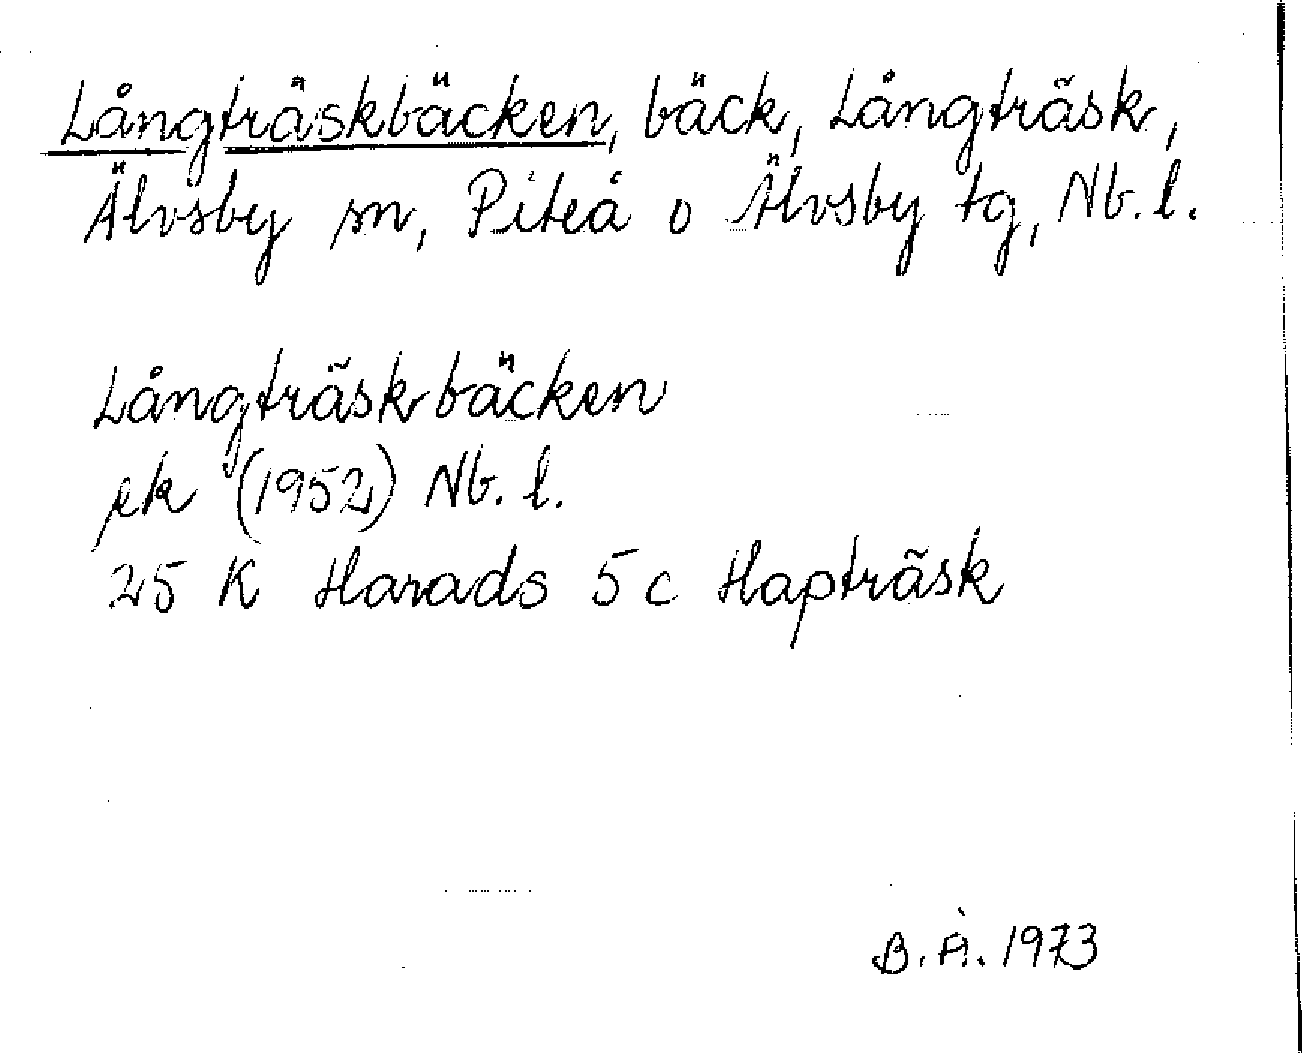 Långträskbäcken, bäck, Långträsk,
Älvsby sn, Piteå o Älvsby tg, Nb. l.
Långträskbäcken
ek (1952) Nb. l.
25 K Harads 5 c Hapträsk
B. Å. 1973